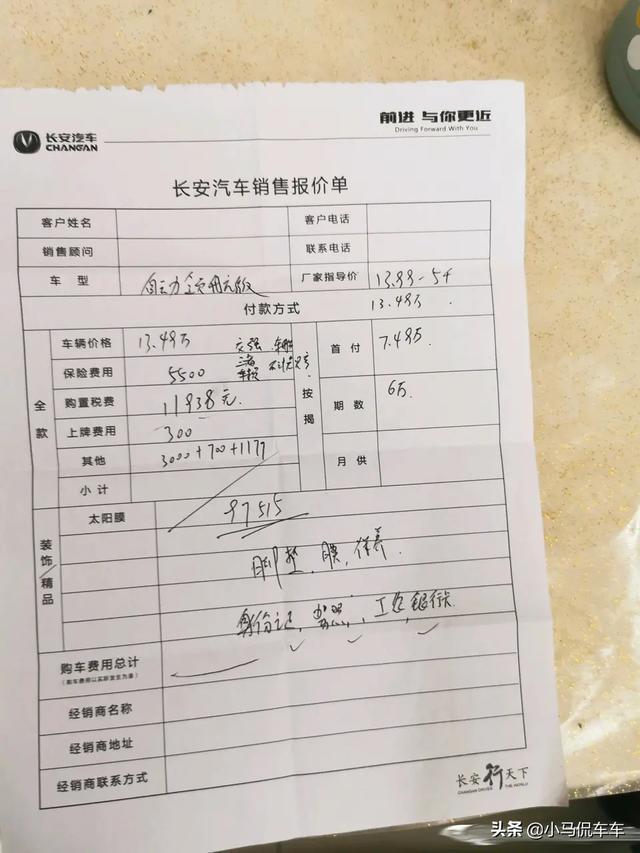 长安汽车
CHANGAN
前进 与你更近
Driving Forward With You
长安汽车销售报价单
客户姓名 客户电话
销售顾问 联系电话
车 型 厂家指导价 13.99-5千
付款方式 13.49万
全款
车辆价格 13.49万 交强
保险费用 5500 三者 车损
购置税费 11938元
上牌费用 300
其他 3000+700+1177
小计
按揭
首付 7.49万
期数 6万
月供
装饰/精品
太阳膜 97515
脚垫、膜,保养
身份证, 工资 银行卡
购车费用总计
(购车费用以实际发生为准)
经销商名称
经销商地址
经销商联系方式
长安行天下
CHANGAN DRIVES THE WORLD
头条 @小马侃车车